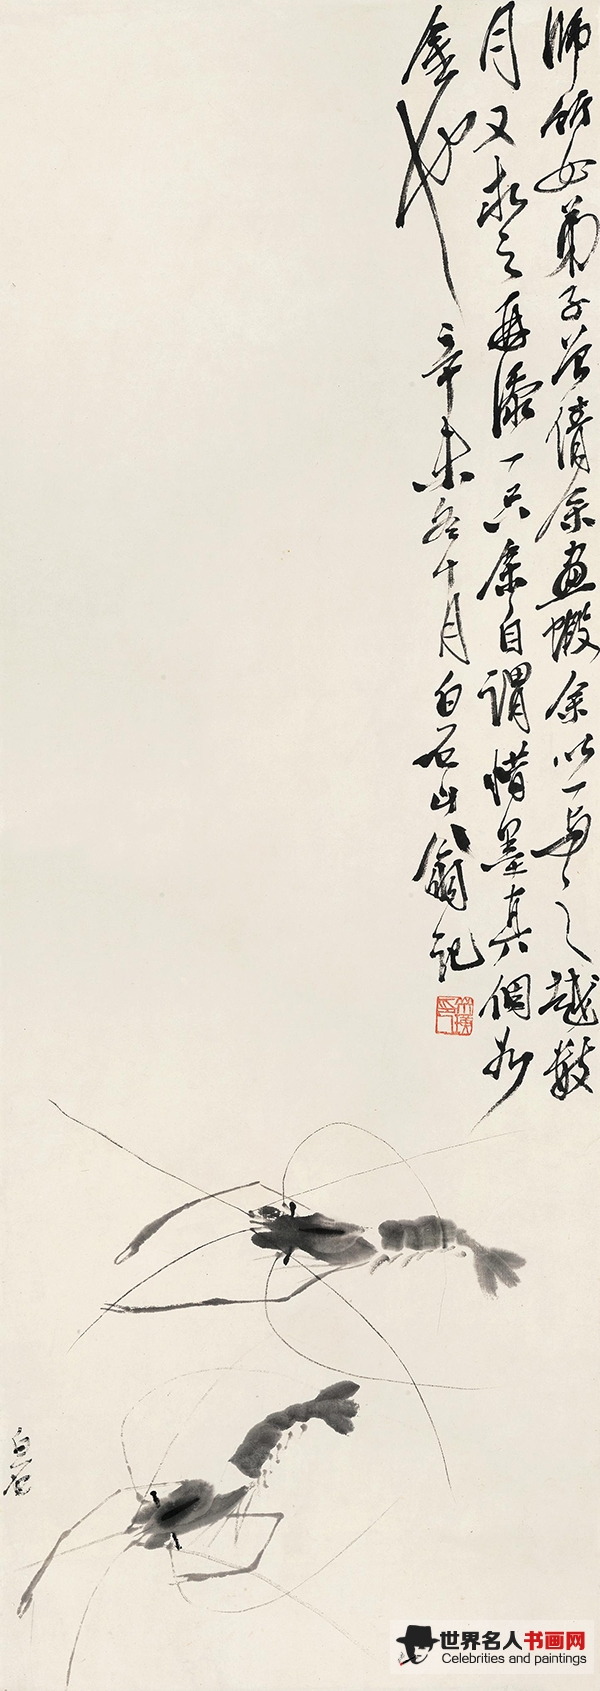 師女弟子曾倩余畫蝦余以一與之越數
月又求之再添一只余自謂惜墨真個如
金也
辛未冬十月白石山翁記
白石
世界名人书画网
Celebrities and paintings